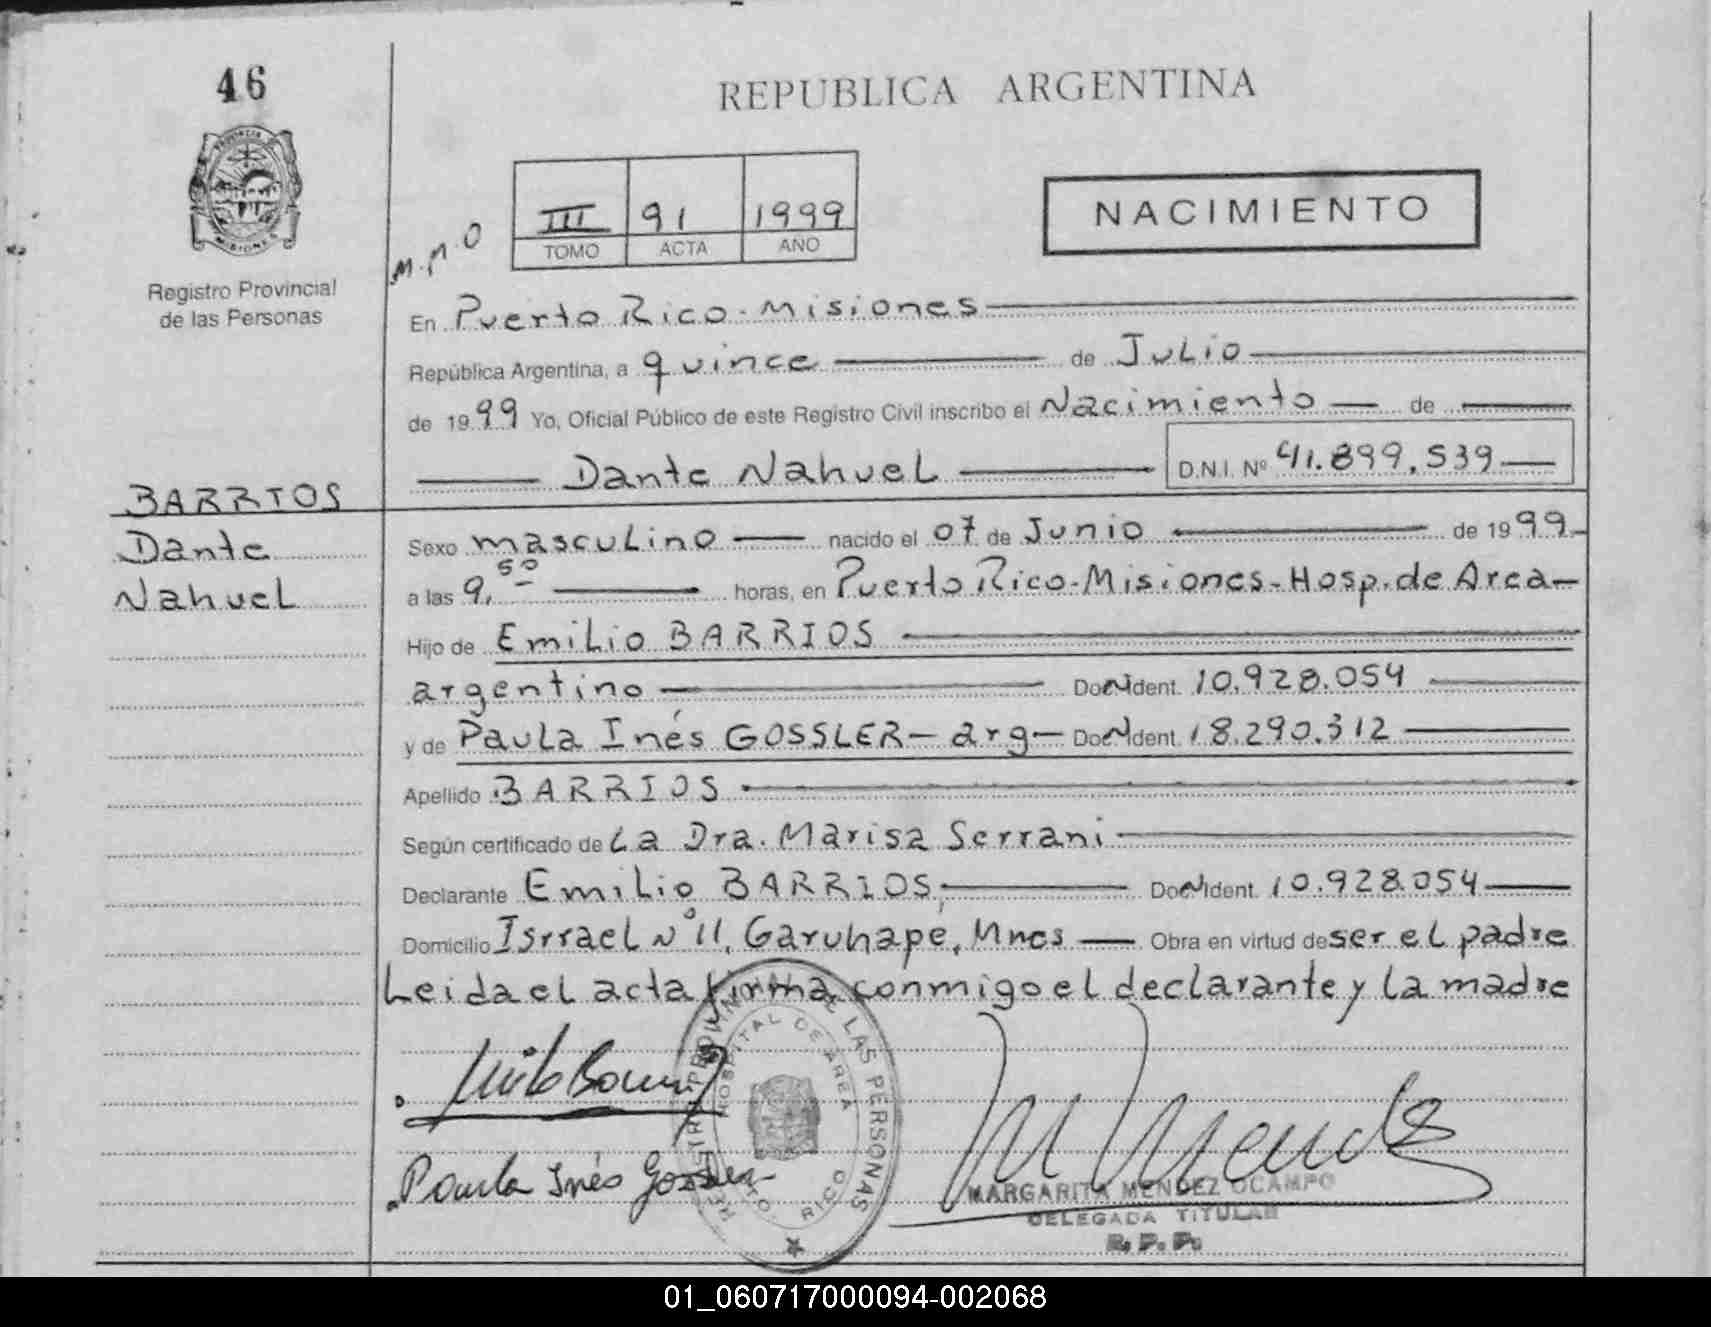 46
REPUBLICA ARGENTINA
PROVINCIA DE
MISIONES
Registro Provincial
de las Personas
M.M O
III 91 1999
TOMO ACTA AÑO
NACIMIENTO
En Puerto Rico - Misiones
República Argentina, a quince de Julio
de 1999 Yo, Oficial Público de este Registro Civil inscribo el Nacimiento de
Dante Nahuel D.N.I. Nº 41.899.539
BARRIOS
Dante
Nahuel
Sexo masculino nacido el 07 de Junio de 1999
a las 9,50 horas, en Puerto Rico - Misiones - Hosp. de Area
Hijo de Emilio BARRIOS
argentino Doc. Ident. 10.928.054
y de Paula Inés GOSSLER - arg - Doc. Ident. 18.290.312
Apellido BARRIOS
Según certificado de La Dra. Marisa Serrani
Declarante Emilio BARRIOS Doc. Ident. 10.928.054
Domicilio Isrrael Nº 11, Garuhape, Mnes Obra en virtud de ser el padre
Leida el acta firma conmigo el declarante y la madre
HOSPITAL DE AREA
DE LAS PERSONAS
PTO. RICO
Paula Inés Gossler
M Mendez
MARGARITA MENDEZ OCAMPO
DELEGADA TITULAR
R. P. P.
01_060717000094-002068